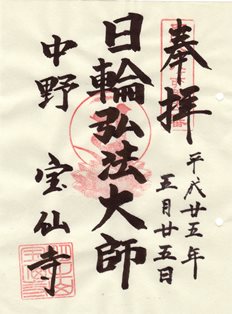 奉拝
平成廿五年
五月廿五日
日輪弘法大師
中野 宝仙寺